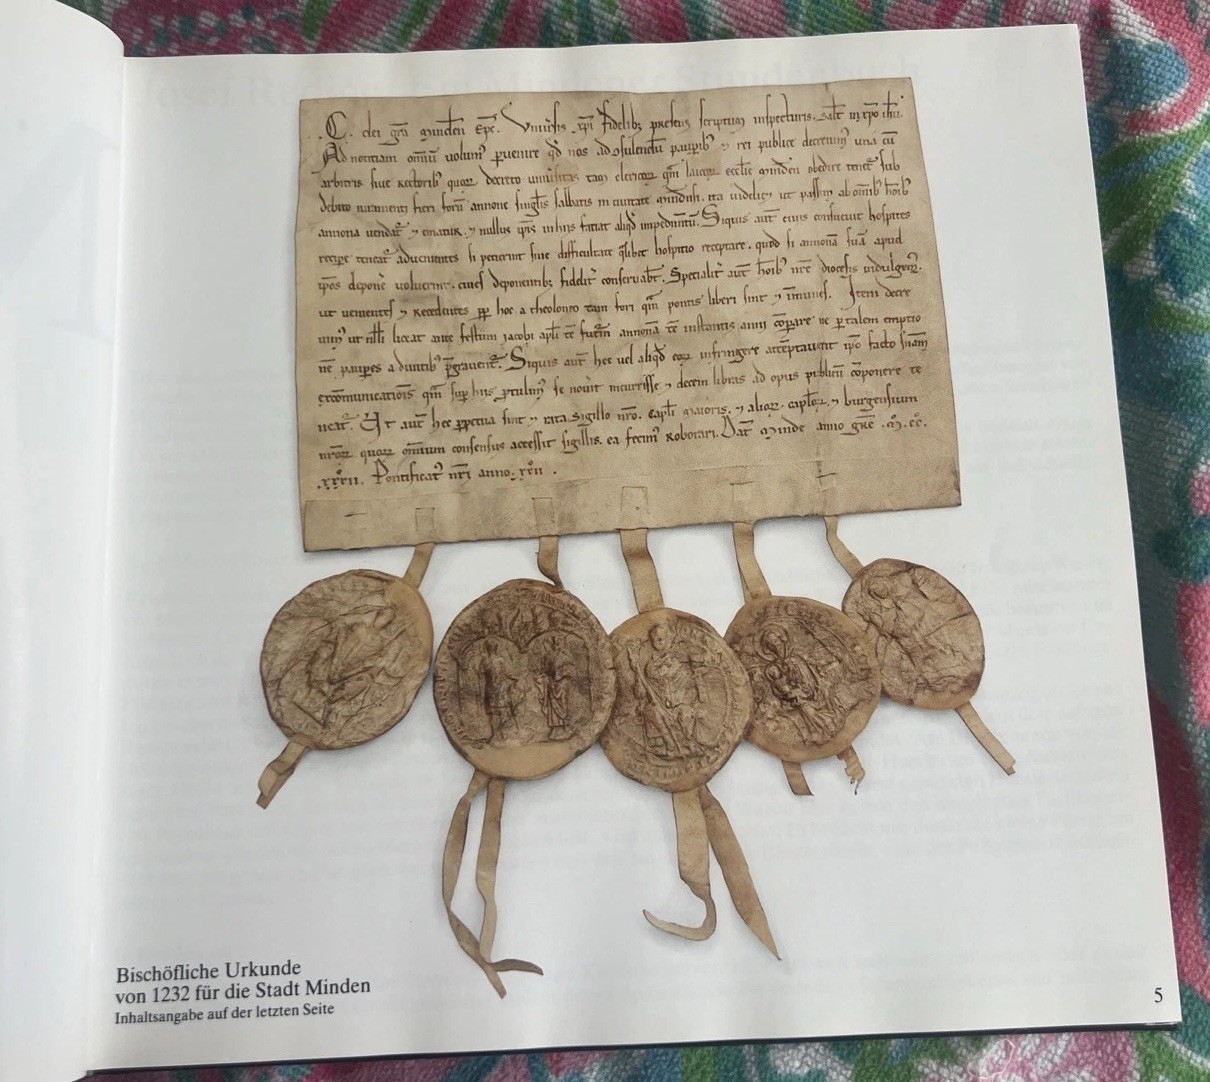 .C. dei gr̄a Minden̄ Ep̄c. Uniu̓sis xp̄i fidelibꝫ presens scriptum inspecturis. salt̄ in xp̄o ih̓u.
Ad notitiam om̄iu uolum᷒ ꝑuenire qd̓ nos ad ꝯsulendu̅ paupibꝰ ⁊ rei publice decreuim᷒ una cu̅
arbitris siue rectoribꝰ quoꝝ decreto uniu̓sitas tam clericoꝝ qm̄ laicoꝝ eccl̄ie Minden̄ obedire tenet᷒ sub
debito iuramenti fieri foru̅ annone singl̓is sabbatis in ciuitate Mindensi. ita uidelicꝫ ut passim ab om̄ibꝰ ho̅ibꝰ
annona uendat᷒ ⁊ ematur. ⁊ nullus ip̄is in hiis faciat aliqd̓ impedim̄tu̅. Siquis aut̄ eius consueuit hospites
recipe teneat᷒ aduenientes si petierint sine difficultate hospitio receptare. quod si annona̅ sua̅ apud
ip̄os depone̓ uoluerint. eius deponentibꝫ fidelit̓ conseruabt̄. Specialit̓ aut̄ ho̅ibꝰ nr̄e diocesis indulgem᷒.
ut uenientes ⁊ recedentes ꝓp̄ hoc a theloneo tam fori qm̄ pontis liberi sint ⁊ i̅munes. Item decre
uim᷒ ut nll̓i liceat ante festum iacobi apl̓i annona̅ instantis anni co̅parare ne ꝑ talem emptio
ne̅ paupes a diuitibꝰ p̄grauent᷒. Siquis aut̄ hec uel aliqd̓ eoꝝ infringere attemptauerit ip̄o facto sn̄iam
exco̅municationis qm̄ sup hiis ꝓtulim᷒ se nou̓it incurrisse ⁊ decem libras ad opus publicu̅ co̅ponere te
neat᷒. Et aut̄ hec ꝑpetua sint ⁊ rata sigillo nr̄o. capl̓i maioris. ⁊ alioꝝ. capl̓oꝝ. ⁊ burgensium
nr̄oꝝ quoꝝ om̄ium consensus accessit sigillis. ea fecim᷒ roborari. Dat̄ Minde anno gr̄e .M̊.cc̊.
.xxxii. Pontificat᷒ nr̄i anno. xxii.
Bischöfliche Urkunde
von 1232 für die Stadt Minden
Inhaltsangabe auf der letzten Seite
5